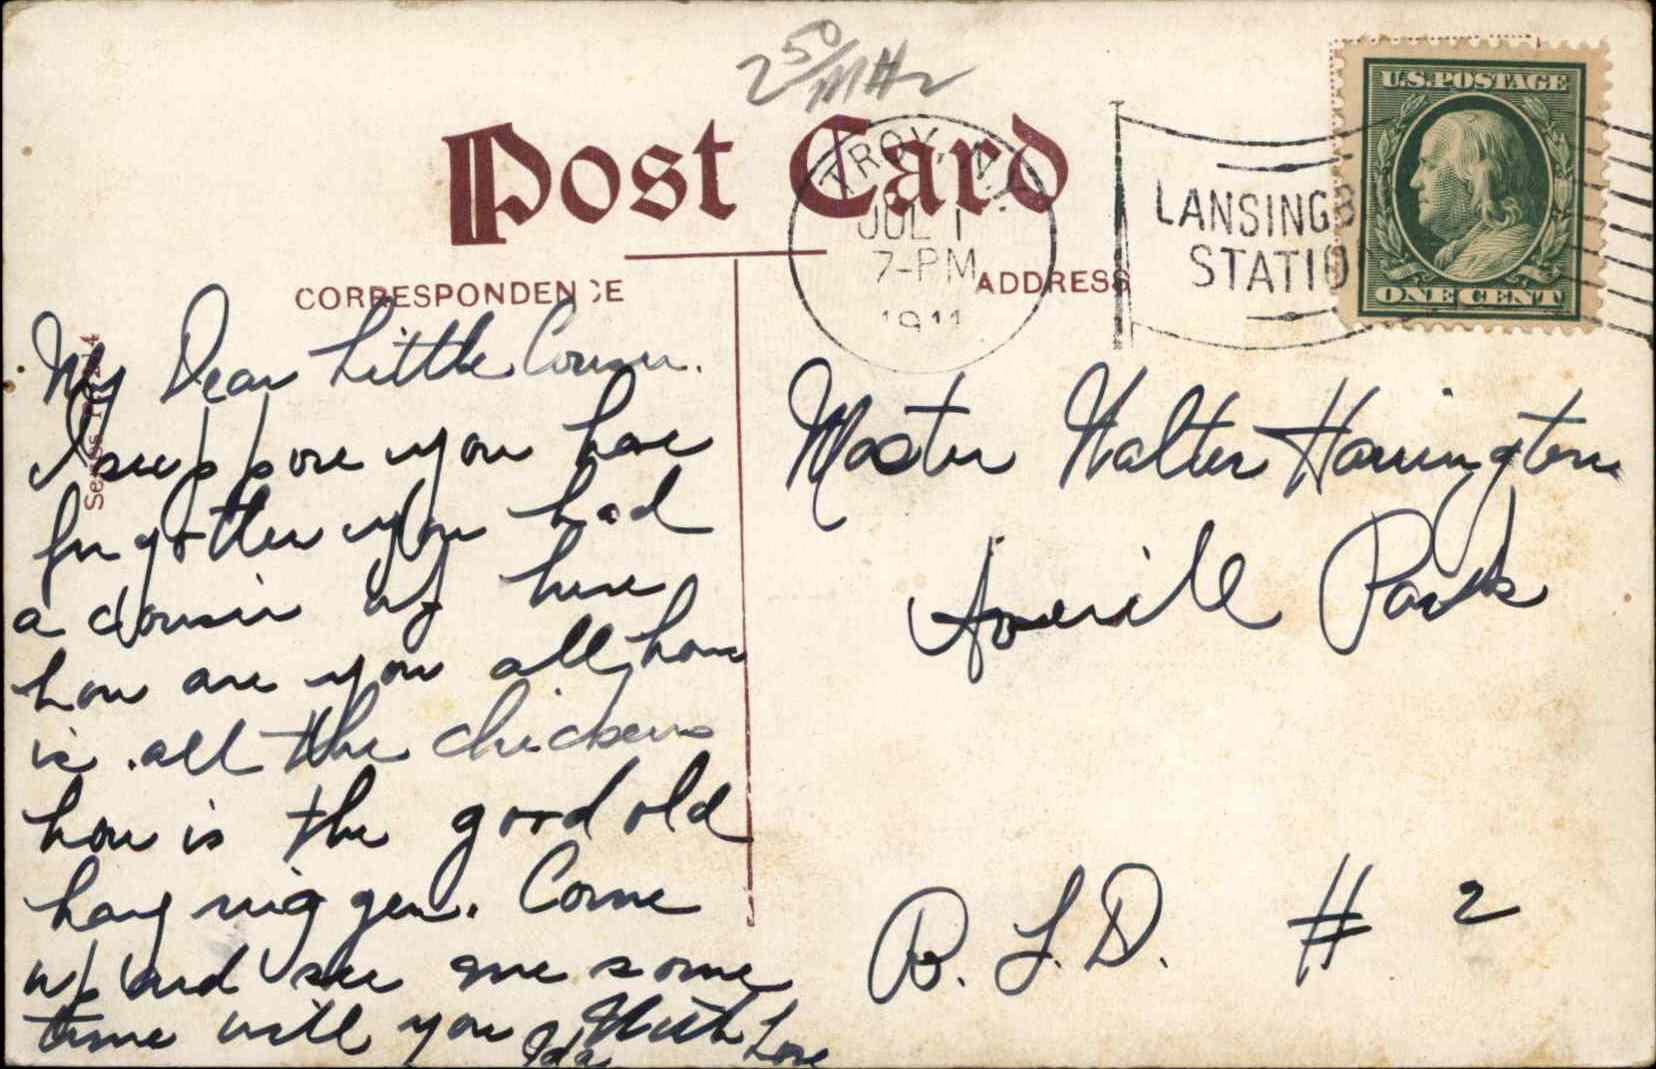 2 50/ MH2
Post Card
TROY, N.
JUL 1
7-PM
1911
LANSINGB
STATIO
U.S. POSTAGE
ONE CENT
CORRESPONDENCE
ADDRESS
Series
My Dear Little Cousin.
I suppose you have
forgotten you had
a cousin up here
how are you all, how
is all the chickens
how is the good old
hay rigger. Come
up and see me some
time will you With Love
Ida
Master Walter Harrington
Averill Park
R. F. D. # 2